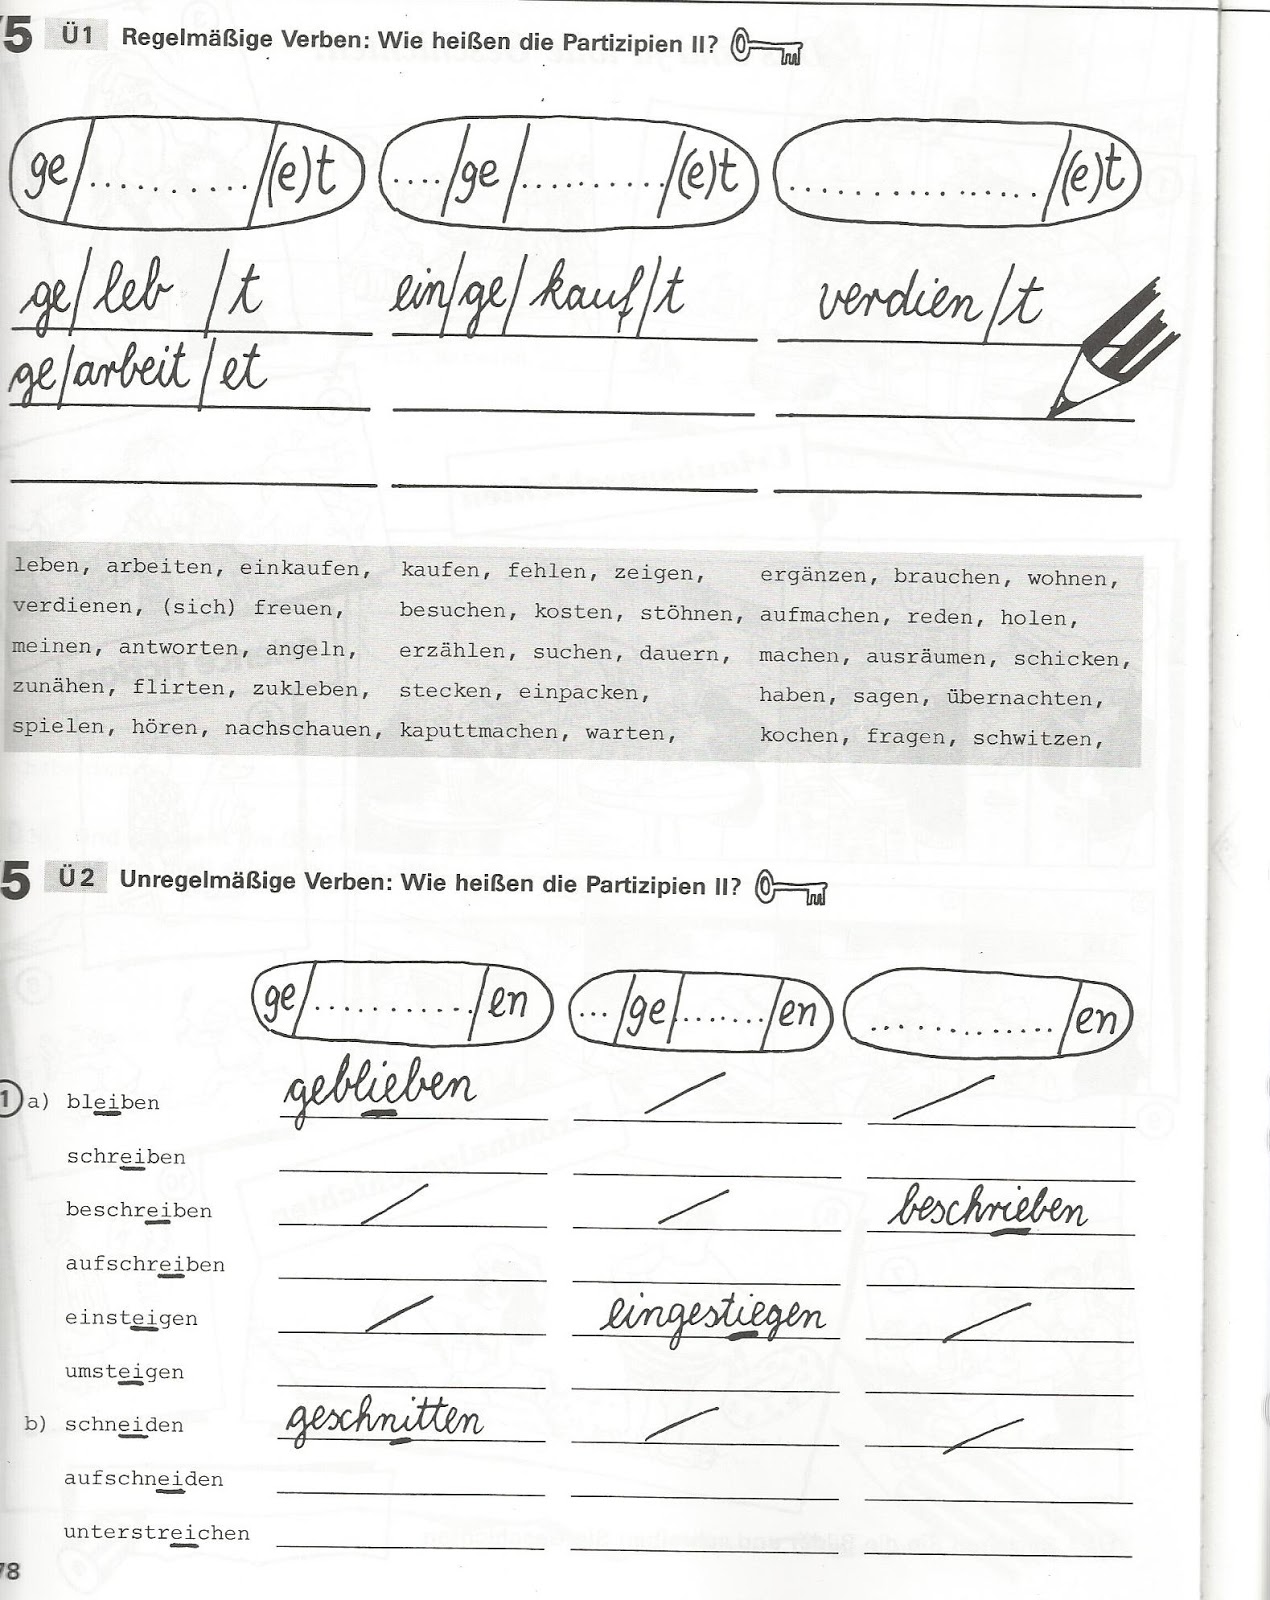 5 Ü1 Regelmäßige Verben: Wie heißen die Partizipien II?
ge/............/(e)t ..../ge/........../(e)t ................/(e)t
ge/leb/t ein/ge/kauf/t verdien/t
ge/arbeit/et
leben, arbeiten, einkaufen, kaufen, fehlen, zeigen, ergänzen, brauchen, wohnen,
verdienen, (sich) freuen, besuchen, kosten, stöhnen, aufmachen, reden, holen,
meinen, antworten, angeln, erzählen, suchen, dauern, machen, ausräumen, schicken,
zunähen, flirten, zukleben, stecken, einpacken, haben, sagen, übernachten,
spielen, hören, nachschauen, kaputtmachen, warten, kochen, fragen, schwitzen,
5 Ü2 Unregelmäßige Verben: Wie heißen die Partizipien II?
ge/............/en .../ge/......../en ............../en
1 a) bleiben geblieben / /
schreiben
beschreiben / / beschrieben
aufschreiben
einsteigen / eingestiegen /
umsteigen
b) schneiden geschnitten / /
aufschneiden
unterstreichen
78